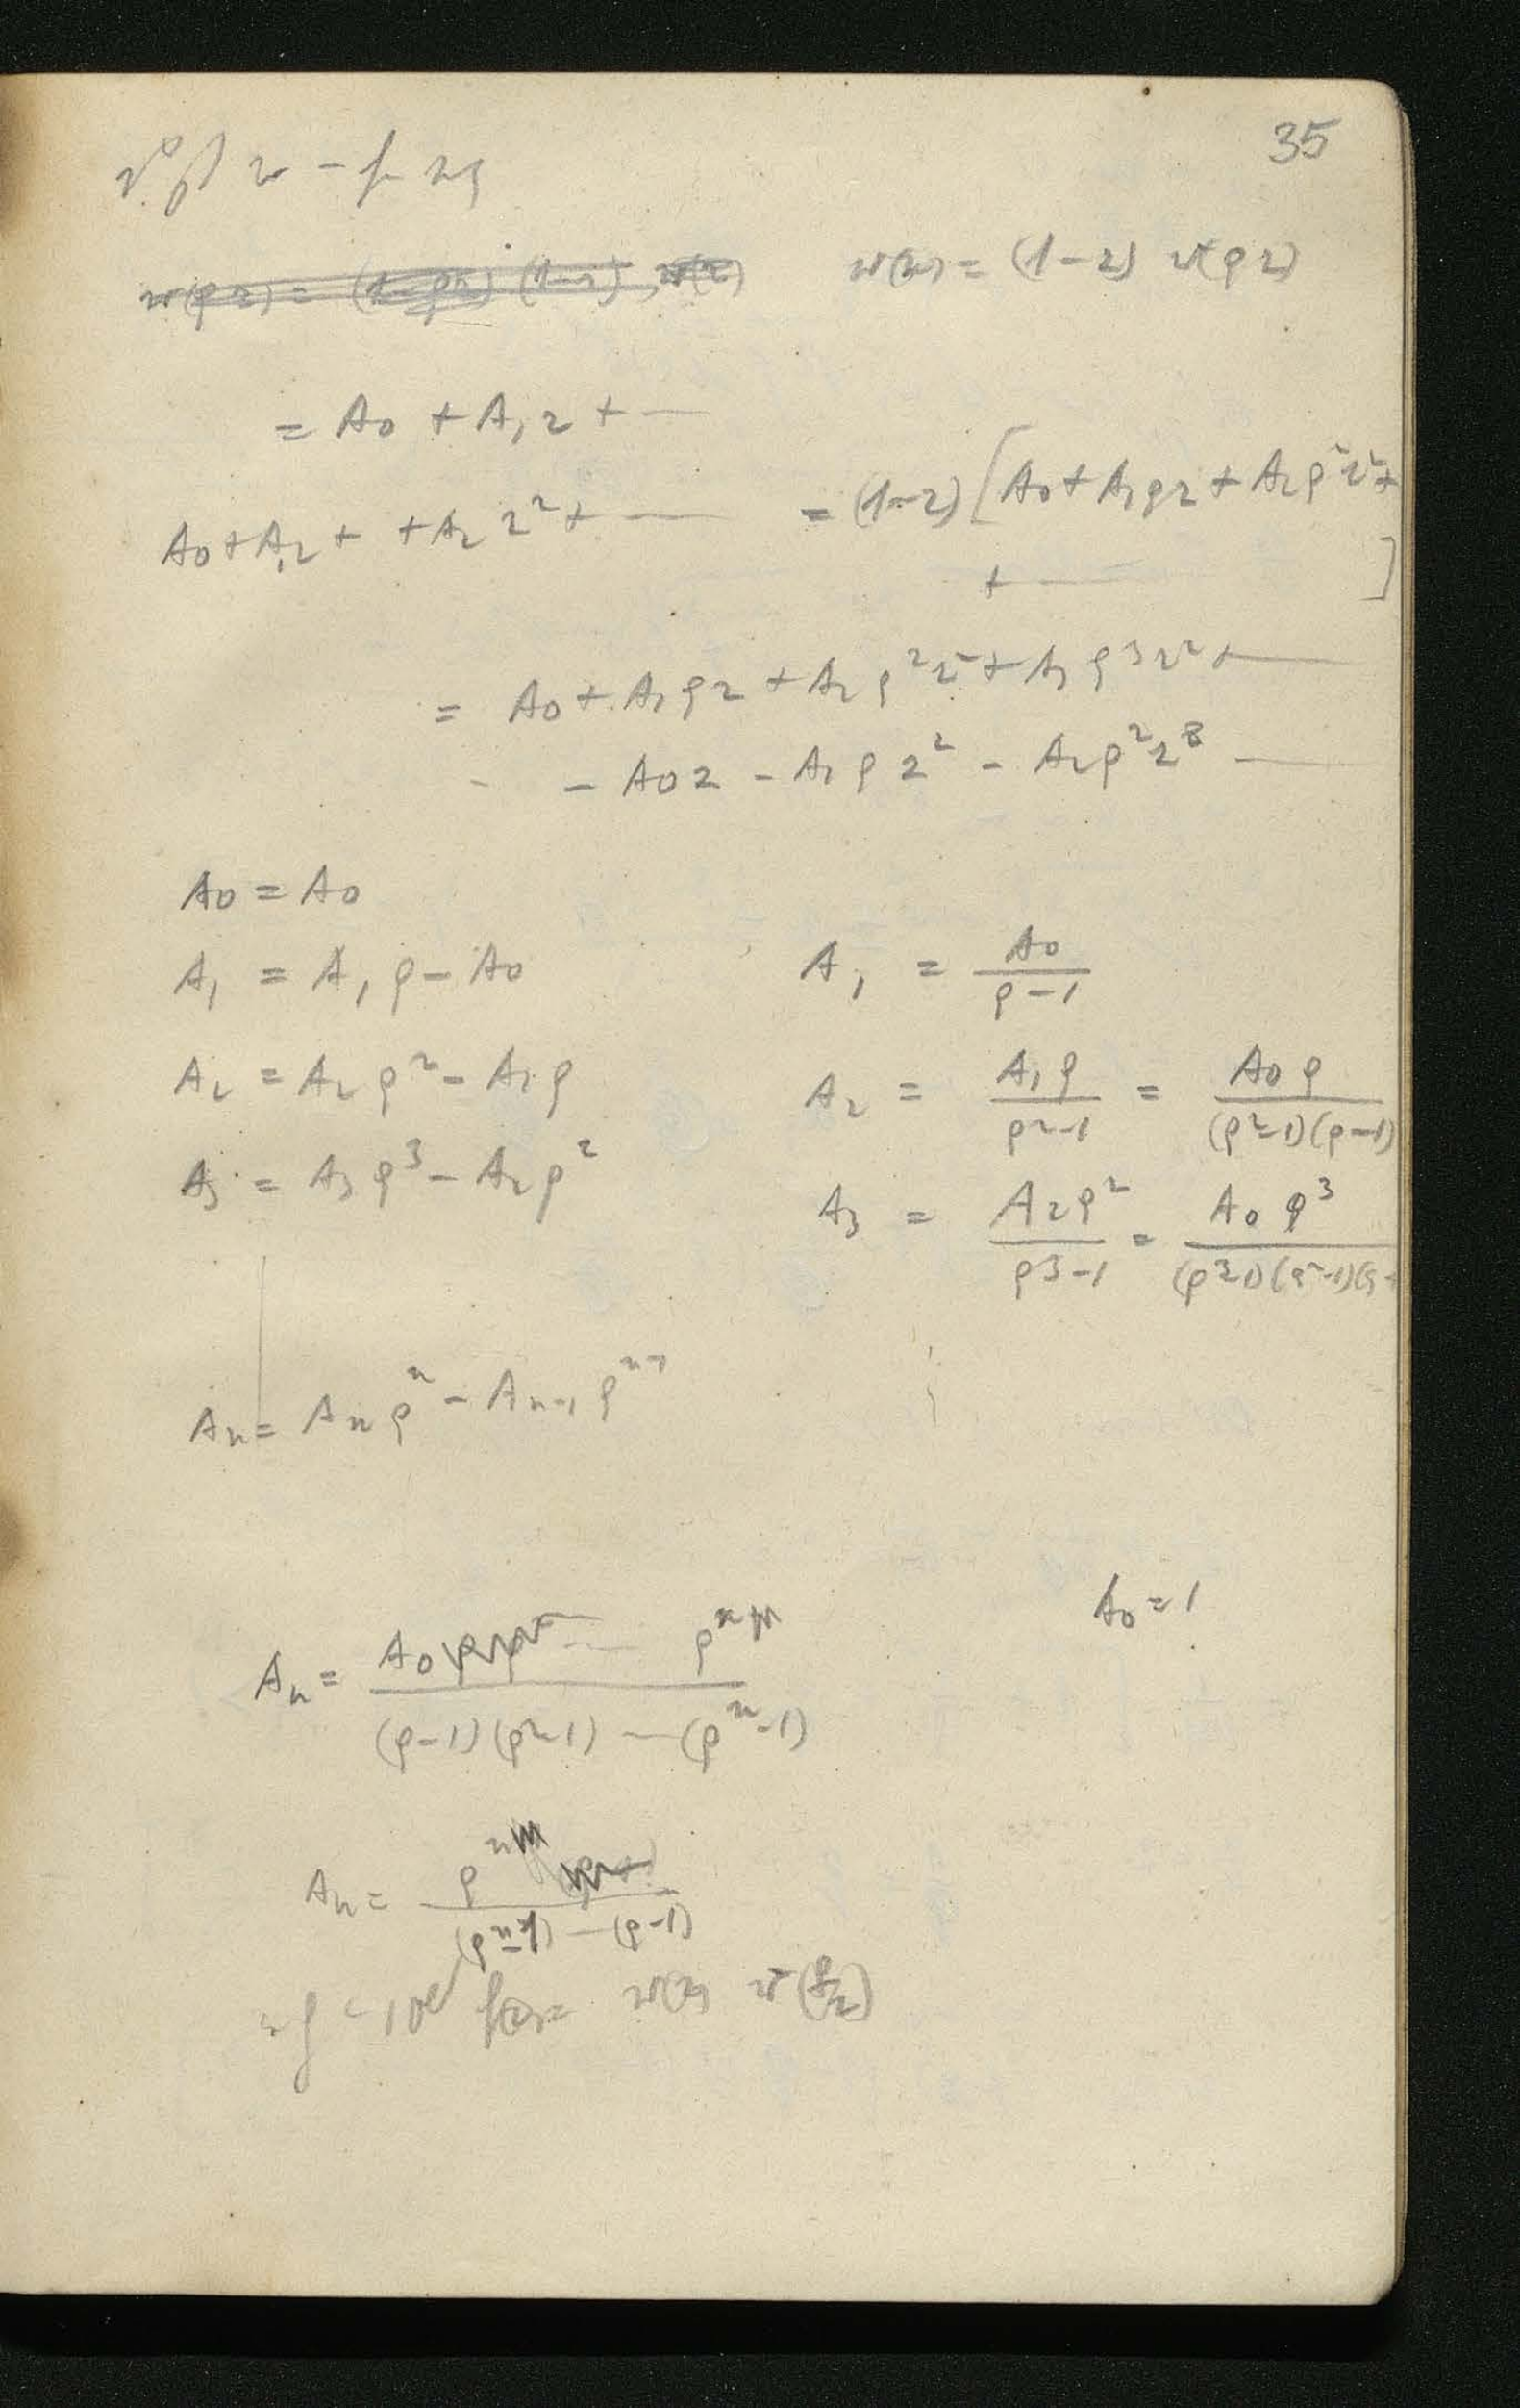 35
w(z) = (1-z) w(ρz)
= A₀ + A₁z + —
A₀+A₁z + + A₂ z² + — = (1-z) [A₀+A₁ρz + A₂ρ²z²+
+ — ]
= A₀ + A₁ρz + A₂ρ²z² + A₃ρ³z² + —
- A₀z - A₁ρz² - A₂ρ²z³ —
A₀ = A₀
A₁ = A₁ρ - A₀ A₁ = A₀/(ρ-1)
A₂ = A₂ρ² - A₁ρ A₂ = A₁ρ/(ρ²-1) = A₀ρ/(ρ²-1)(ρ-1)
A₃ = A₃ρ³ - A₂ρ² A₃ = A₂ρ²/(ρ³-1) = A₀ρ³/(ρ³-1)(ρ²-1)(ρ-
Aₙ = Aₙρⁿ - Aₙ₋₁ρⁿ⁻¹
A₀ = 1
Aₙ = A₀ — ρⁿ/(ρ-1)(ρ²-1) — (ρⁿ-1)
Aₙ = ρⁿ/(ρⁿ-1) — (ρ-1)